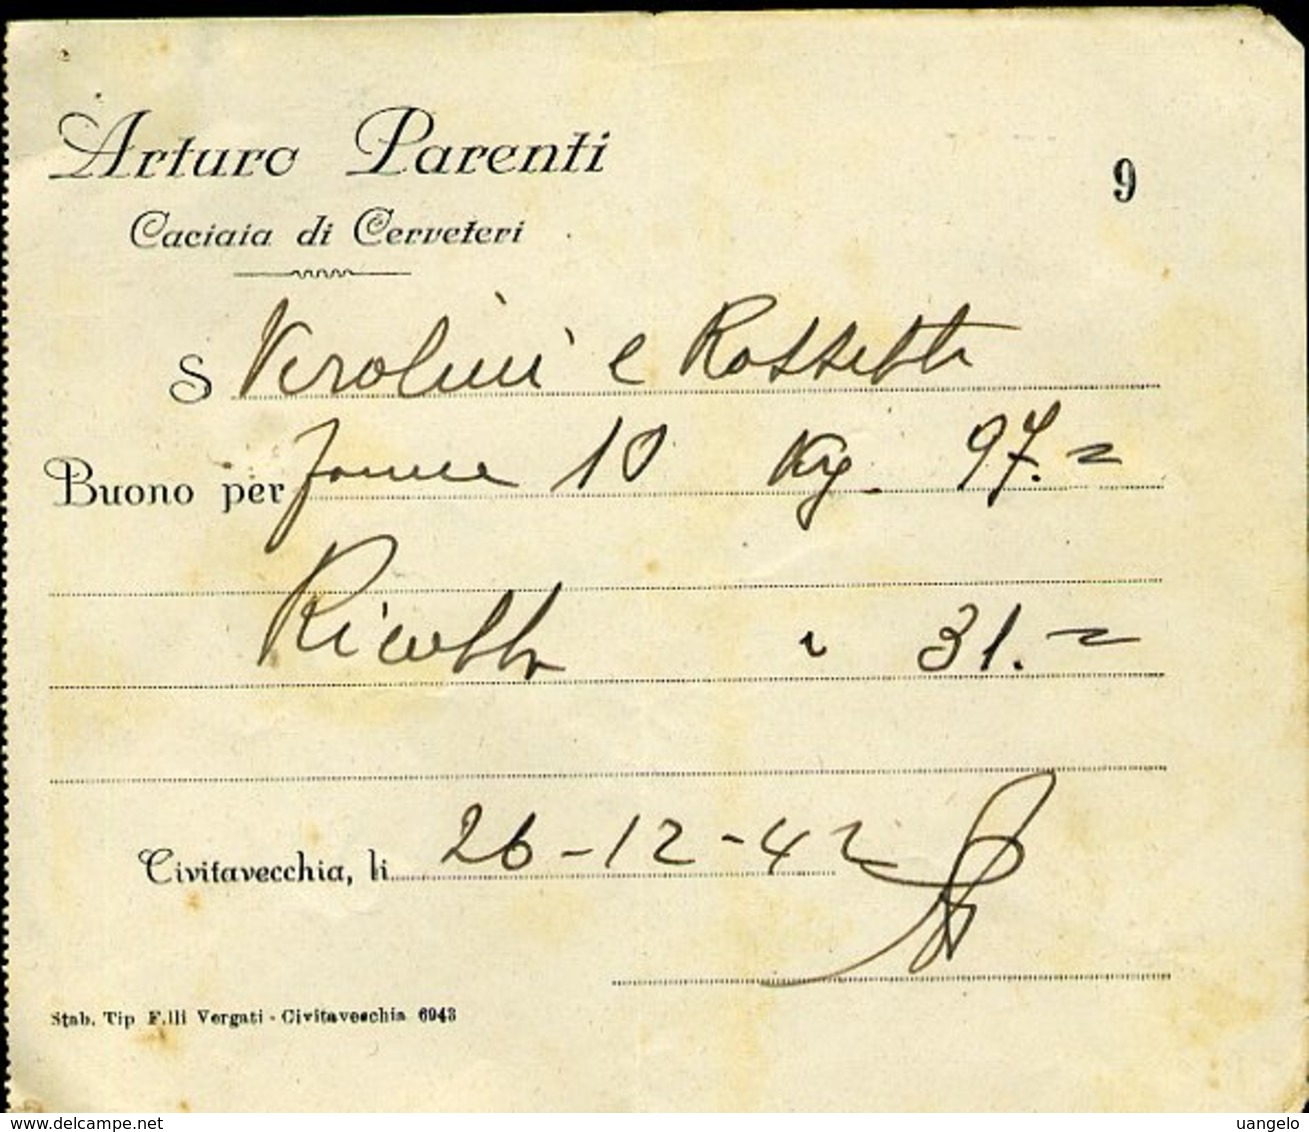 Arturo Parenti
9
Caciaia di Cerveteri
S Verolini e Rossetti
Buono per forme 10 Kg. 97.=
Ricotta " 31.=
Civitavecchia, li 26-12-42
Stab. Tip F.lli Vergati - Civitavecchia 6943
www.delcampe.net
uangelo